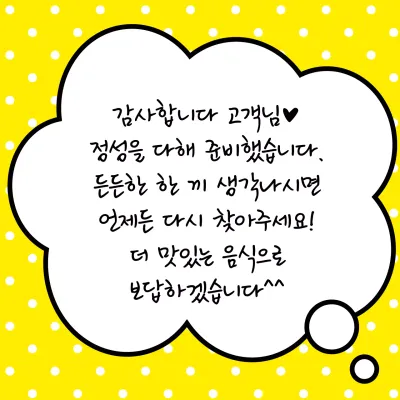 감사합니다 고객님♥
정성을 다해 준비했습니다.
든든한 한 끼 생각나시면
언제든 다시 찾아주세요!
더 맛있는 음식으로
보답하겠습니다^^